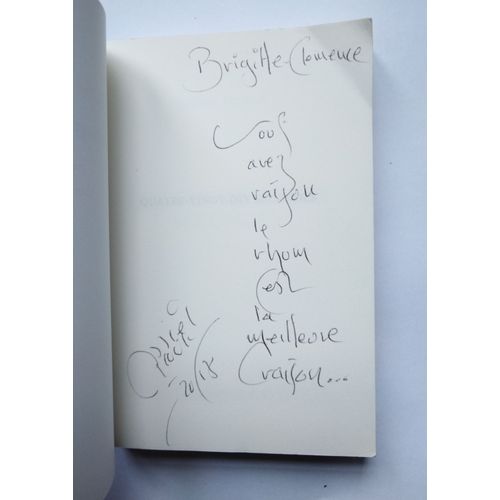 Brigitte-Clemence
Vous
avez
raison
le
rhum
est
la
meilleure
raison...
2018